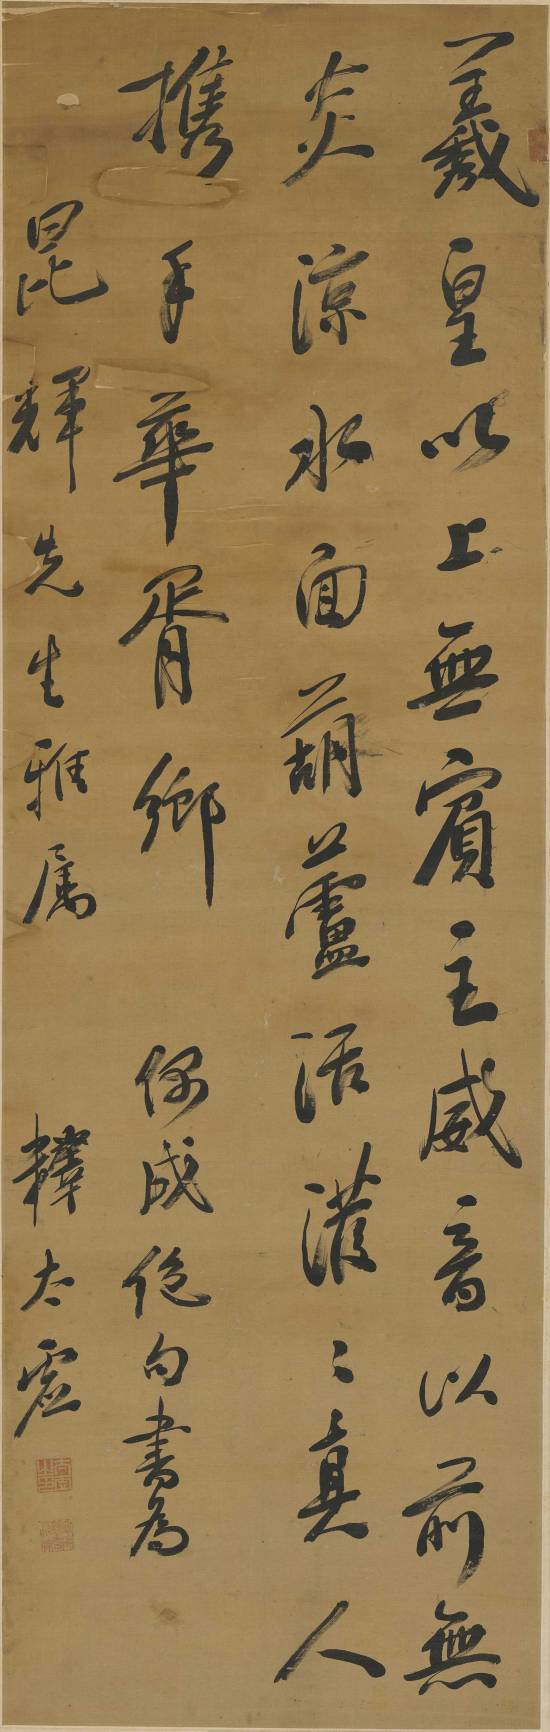 羲皇以上無賓主威音以前無
炎涼水面葫蘆活潑〻真人
攜手華胥鄉 偶成絕句書為
昆輝先生雅属 釋太虛